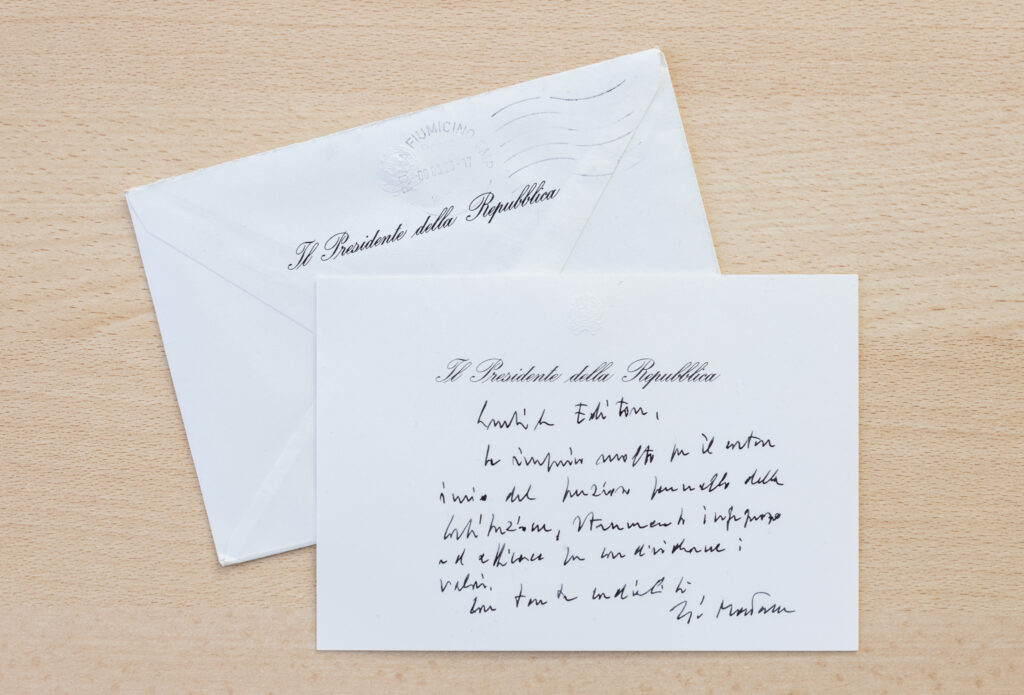 FIUMICINO
Il Presidente della Repubblica
Il Presidente della Repubblica
Gentile Editore,
La ringrazio molto per il cortese
invio del prezioso pannello della
Costituzione, strumento ingegnoso
ed efficace per condividerne i
valori.
Con tanta cordialità